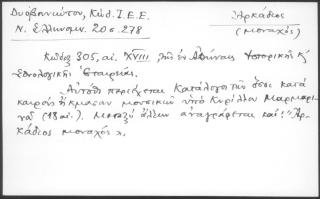 Δυοβουνιώτου, Κώδ. Ι.Ε.Ε.
Ν. Ελληνομν. 20 σ. 278
Ἀρκάδιος
(μοναχός)
Κώδιξ 305, αἰ. XVIII τῆς ἐν Ἀθήναις Ἱστορικῆς κ
Ἐθνολογικῆς Ἑταιρείας.
Αὐτόθι περιέχεται Κατάλογος τῶν ὅσοι κατὰ
καιροὺς ἤκμασαν μουσικῶν ὑπὸ Κυρίλλου Μαρμαρη-
νοῦ (18 αἰ.). Μεταξὺ ἄλλων ἀναγράφεται καί: "Ἀρ-
κάδιος μοναχός".